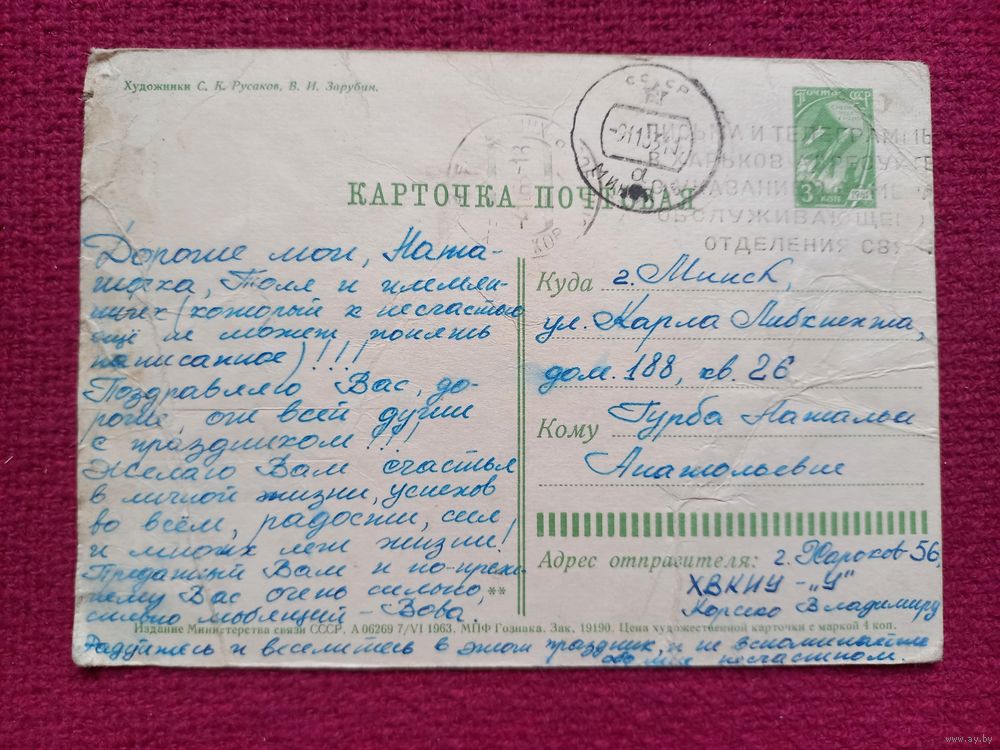 Художники С. К. Русаков, В. И. Зарубин.
ПОЧТА СССР
3 КОП
1961
СССР
-911.63
МИНСК
ПИСЬМА И ТЕЛЕГРАММЫ
В ХАРЬКОВ АДРЕСУЙТЕ
С УКАЗАНИЕМ
ОБСЛУЖИВАЮЩЕГО
ОТДЕЛЕНИЯ СВЯ
КАРТОЧКА ПОЧТОВАЯ
Дорогие мои, Ната-
шеха, Толя и племян-
ник (который к несчастью
ещё не может понять
написанное)!!!
Поздравляю Вас, до-
рогие, от всей души
с праздником!!!
Желаю Вам счастья
в личной жизни, успехов
во всём, радости, сил
и многих лет жизни!
Преданный Вам и по-преж-
нему Вас очень сильно,
сильно любящий - Вова.
Куда г. Минск,
ул. Карла Либкнехта,
дом. 188, кв. 26
Кому Гурба Наталье
Анатольевне
Адрес отправителя: г. Харьков-56,
ХВКИУ - „У"
Корсеко Владимиру
**
Издание Министерства связи СССР. А 06269 7/VI 1963. МПФ Гознака. Зак. 19190. Цена художественной карточки с маркой 4 коп.
Радуйтесь и веселитесь в этот праздник, и не вспоминайте
обо мне несчастном.